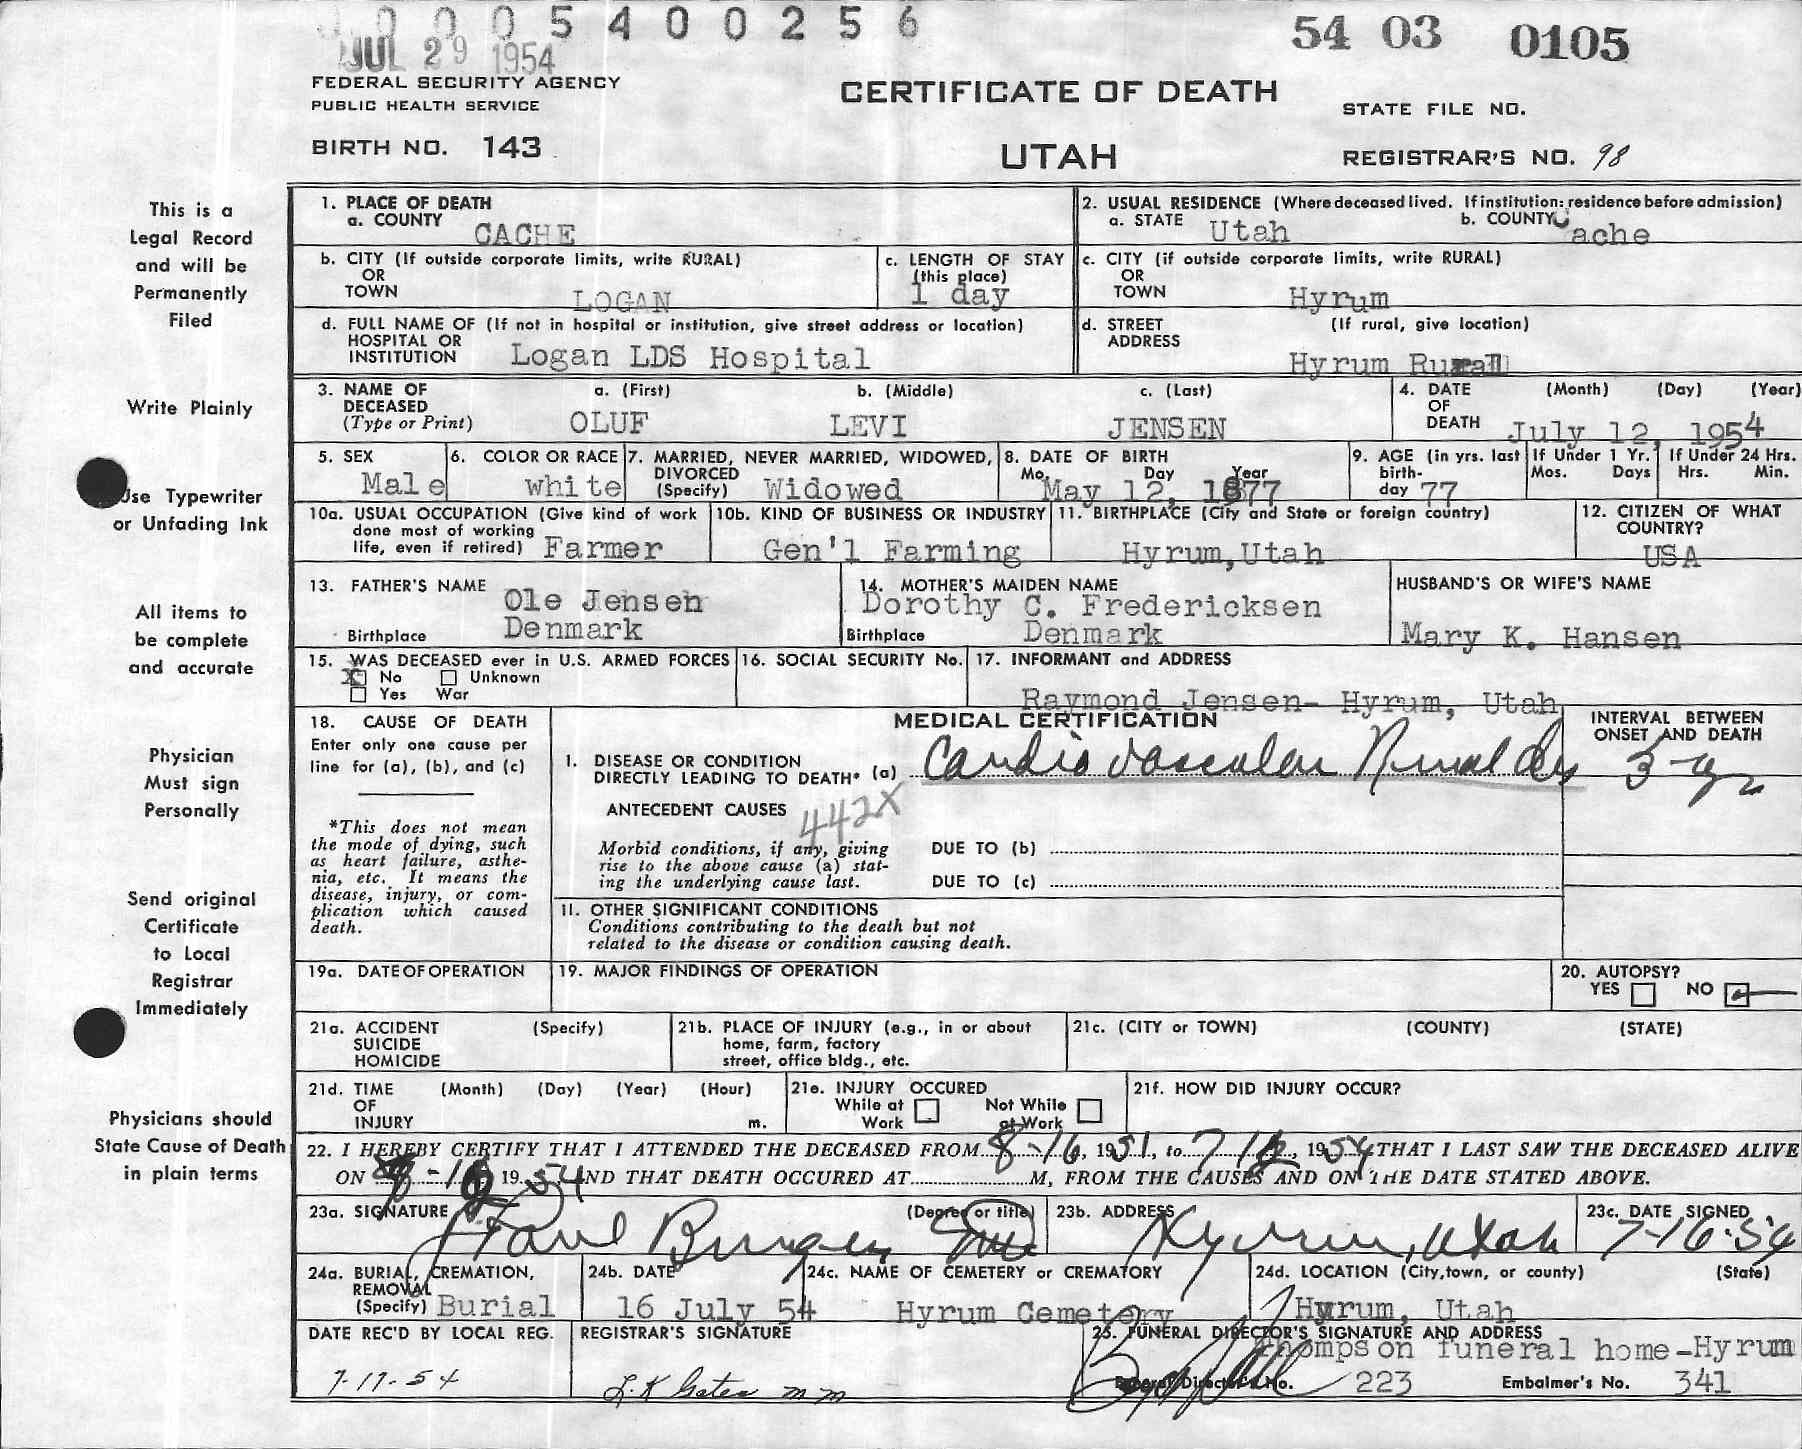 0 0 0 5 4 0 0 2 5 6
JUL 29 1954
54 03 0105
FEDERAL SECURITY AGENCY
PUBLIC HEALTH SERVICE
CERTIFICATE OF DEATH
STATE FILE NO.
BIRTH NO. 143
UTAH
REGISTRAR'S NO. 98
This is a
Legal Record
and will be
Permanently
Filed
Write Plainly
Use Typewriter
or Unfading Ink
All items to
be complete
and accurate
Physician
Must sign
Personally
Send original
Certificate
to Local
Registrar
Immediately
Physicians should
State Cause of Death
in plain terms
1. PLACE OF DEATH
a. COUNTY CACHE
2. USUAL RESIDENCE (Where deceased lived. If institution: residence before admission)
a. STATE Utah b. COUNTY Cache
b. CITY (If outside corporate limits, write RURAL)
OR
TOWN LOGAN
c. LENGTH OF STAY
(this place)
1 day
c. CITY (if outside corporate limits, write RURAL)
OR
TOWN Hyrum
d. FULL NAME OF (If not in hospital or institution, give street address or location)
HOSPITAL OR
INSTITUTION Logan LDS Hospital
d. STREET (If rural, give location)
ADDRESS
Hyrum Rural
3. NAME OF
DECEASED
(Type or Print)
a. (First) b. (Middle) c. (Last)
OLUF LEVI JENSEN
4. DATE (Month) (Day) (Year)
OF
DEATH July 12, 1954
5. SEX
Male
6. COLOR OR RACE
white
7. MARRIED, NEVER MARRIED, WIDOWED,
DIVORCED
(Specify) Widowed
8. DATE OF BIRTH
Mo. Day Year
May 12, 1877
9. AGE (in yrs. last
birth-
day 77
If Under 1 Yr.
Mos. Days
If Under 24 Hrs.
Hrs. Min.
10a. USUAL OCCUPATION (Give kind of work
done most of working
life, even if retired) Farmer
10b. KIND OF BUSINESS OR INDUSTRY
Gen'l Farming
11. BIRTHPLACE (City and State or foreign country)
Hyrum,Utah
12. CITIZEN OF WHAT
COUNTRY?
USA
13. FATHER'S NAME Ole Jensen
Birthplace Denmark
14. MOTHER'S MAIDEN NAME
Dorothy C. Fredericksen
Birthplace Denmark
HUSBAND'S OR WIFE'S NAME
Mary K. Hansen
15. WAS DECEASED ever in U.S. ARMED FORCES
X No Unknown
Yes War
16. SOCIAL SECURITY No.
17. INFORMANT and ADDRESS
Raymond Jensen- Hyrum, Utah
18. CAUSE OF DEATH
Enter only one cause per
line for (a), (b), and (c)
*This does not mean
the mode of dying, such
as heart failure, asthe-
nia, etc. It means the
disease, injury, or com-
plication which caused
death.
MEDICAL CERTIFICATION
INTERVAL BETWEEN
ONSET AND DEATH
I. DISEASE OR CONDITION
DIRECTLY LEADING TO DEATH* (a) Cardio Vascular Renal Dis
3 yr
ANTECEDENT CAUSES
442X
Morbid conditions, if any, giving
rise to the above cause (a) stat-
ing the underlying cause last.
DUE TO (b)
DUE TO (c)
11. OTHER SIGNIFICANT CONDITIONS
Conditions contributing to the death but not
related to the disease or condition causing death.
19a. DATE OF OPERATION
19. MAJOR FINDINGS OF OPERATION
20. AUTOPSY?
YES NO
21a. ACCIDENT (Specify)
SUICIDE
HOMICIDE
21b. PLACE OF INJURY (e.g., in or about
home, farm, factory
street, office bldg., etc.
21c. (CITY or TOWN) (COUNTY) (STATE)
21d. TIME (Month) (Day) (Year) (Hour)
OF
INJURY m.
21e. INJURY OCCURED
While at Not While
Work at Work
21f. HOW DID INJURY OCCUR?
22. I HEREBY CERTIFY THAT I ATTENDED THE DECEASED FROM 8-16, 1951, to 7 12, 1954 THAT I LAST SAW THE DECEASED ALIVE
ON 1954 AND THAT DEATH OCCURED AT M, FROM THE CAUSES AND ON THE DATE STATED ABOVE.
23a. SIGNATURE (Degree or title)
Paul
23b. ADDRESS
Hyrum, Utah
23c. DATE SIGNED
7-16-54
24a. BURIAL, CREMATION,
REMOVAL
(Specify) Burial
24b. DATE
16 July 54
24c. NAME OF CEMETERY or CREMATORY
Hyrum Cemetery
24d. LOCATION (City,town, or county) (State)
Hyrum, Utah
DATE REC'D BY LOCAL REG.
7-17-54
REGISTRAR'S SIGNATURE
25. FUNERAL DIRECTOR'S SIGNATURE AND ADDRESS
Thompson funeral home-Hyrum
Funeral Director's No. 223 Embalmer's No. 341